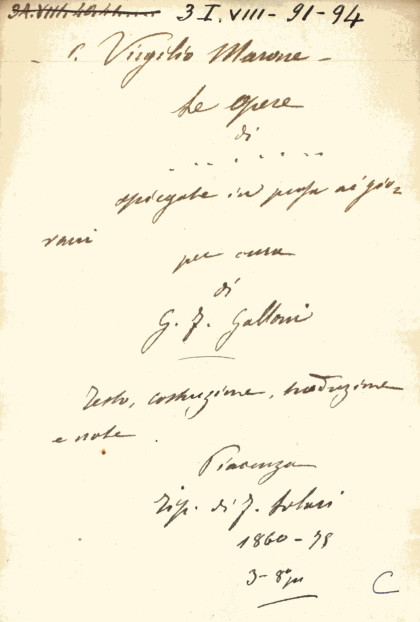 3 I. VIII - 91-94
P. Virgilio Marone -
Le Opere
di
. . . . . . .
spiegate in prosa ai gio-
vani
per cura
di
G. F. Galloni
Testo, costruzione, traduzione
e note
Piacenza
Tip. di F. Solari
1860-75
3-8°
C